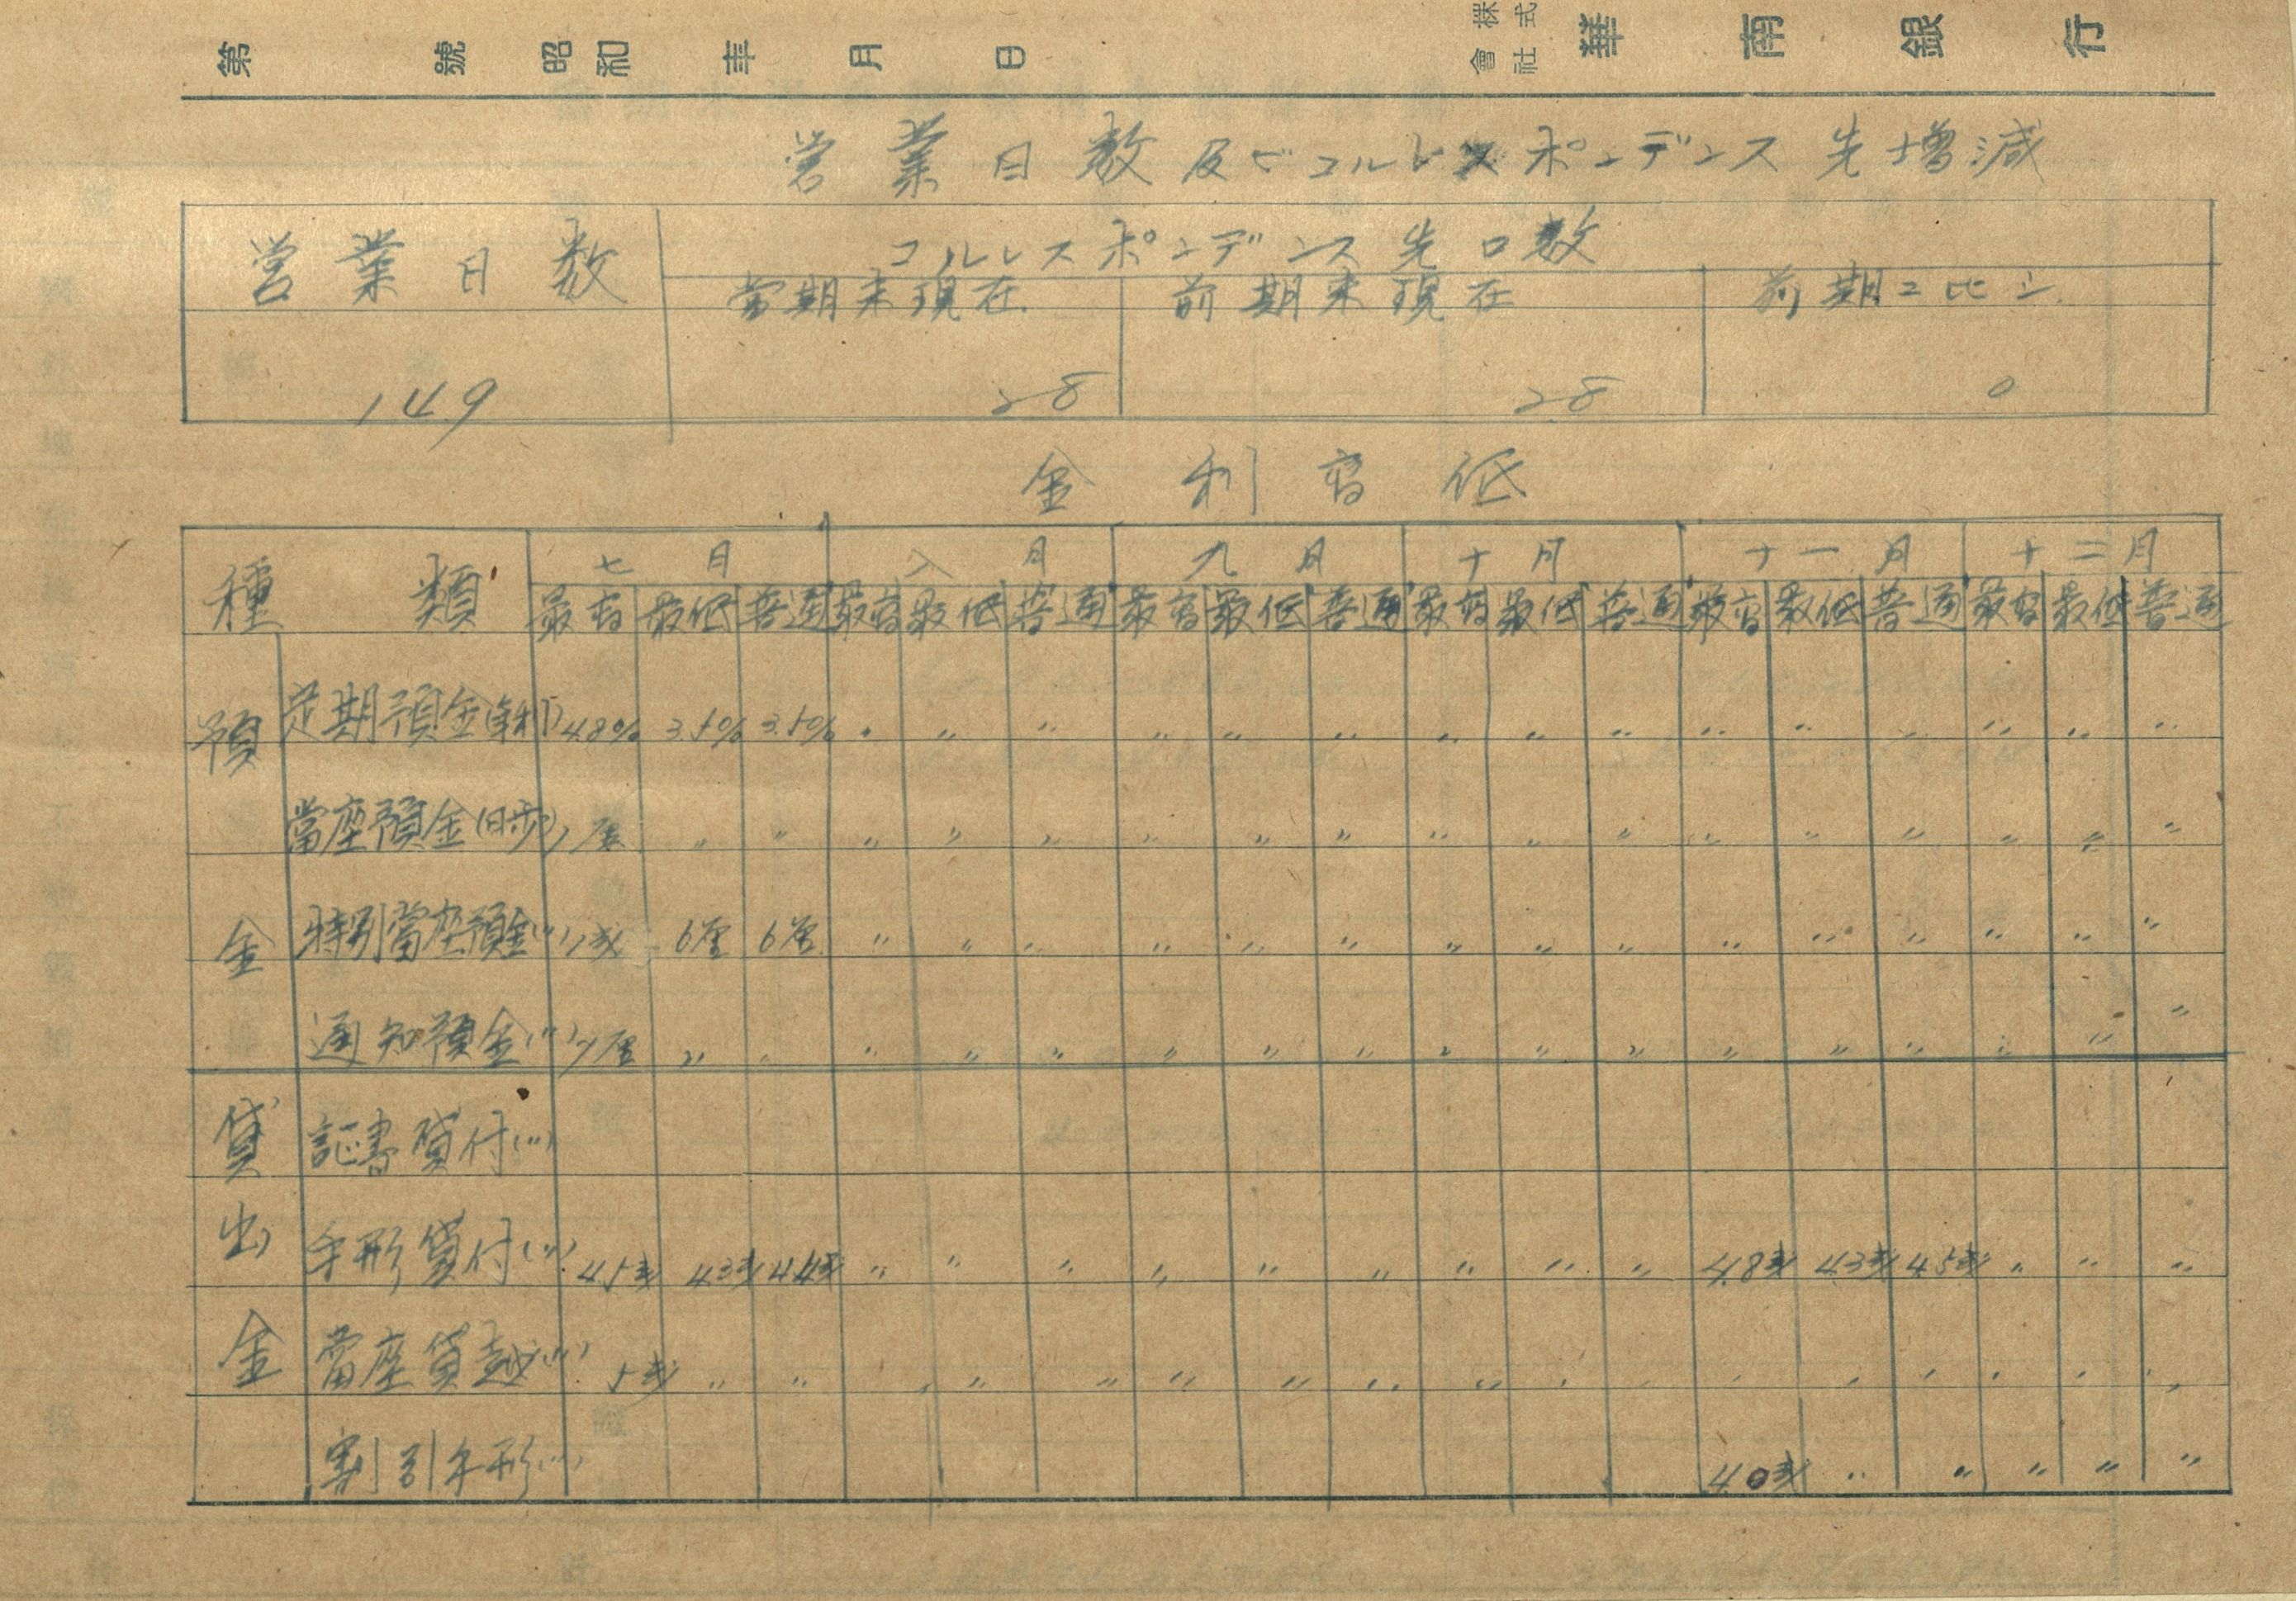 第 號 昭和 年 月 日 株式會社 華南銀行
営業日数及ビコルレスポンデンス先増減
営業日数 コルレスポンデンス先口数
當期末現在 前期末現在 前期ニ比シ
149 28 28 0
金利高低
種類 七月 八月 九月 十月 十一月 十二月
最高 最低 普通 最高 最低 普通 最高 最低 普通 最高 最低 普通 最高 最低 普通 最高 最低 普通
預金
定期預金(年利) 4.8% 3.5% 3.5% 〃 〃 〃 〃 〃 〃 〃 〃 〃 〃 〃 〃 〃 〃 〃
當座預金(日歩) 厘 〃 〃 〃 〃 〃 〃 〃 〃 〃 〃 〃 〃 〃 〃 〃 〃 〃
特別當座預金(〃) 6厘 6厘 〃 〃 〃 〃 〃 〃 〃 〃 〃 〃 〃 〃 〃 〃 〃
通知預金(〃) 厘 〃 〃 〃 〃 〃 〃 〃 〃 〃 〃 〃 〃 〃 〃 〃 〃 〃
貸出金
証書貸付(〃)
手形貸付(〃) 4.5戔 4.3戔 4.4戔 〃 〃 〃 〃 〃 〃 〃 〃 〃 4.8戔 4.3戔 4.5戔 〃 〃 〃
當座貸越(〃) 5戔 〃 〃 〃 〃 〃 〃 〃 〃 〃 〃 〃 〃 〃 〃 〃 〃 〃
割引手形(〃) 4.0戔 〃 〃 〃 〃 〃